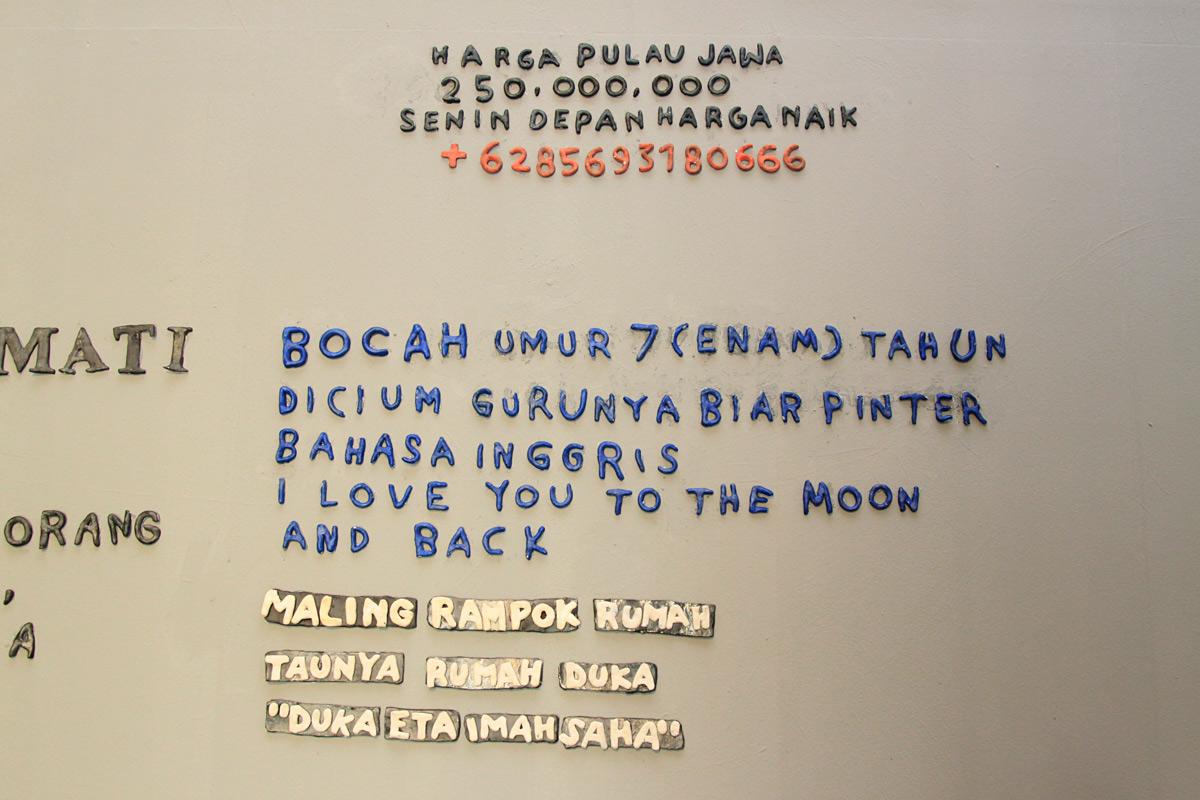 HARGA PULAU JAWA
250.000.000
SENIN DEPAN HARGA NAIK
+6285693180666
MATI
BOCAH UMUR 7 (ENAM) TAHUN
DICIUM GURUNYA BIAR PINTER
BAHASA INGGRIS
I LOVE YOU TO THE MOON
AND BACK
ORANG
,
A
MALING RAMPOK RUMAH
TAUNYA RUMAH DUKA
"DUKA ETA IMAH SAHA"